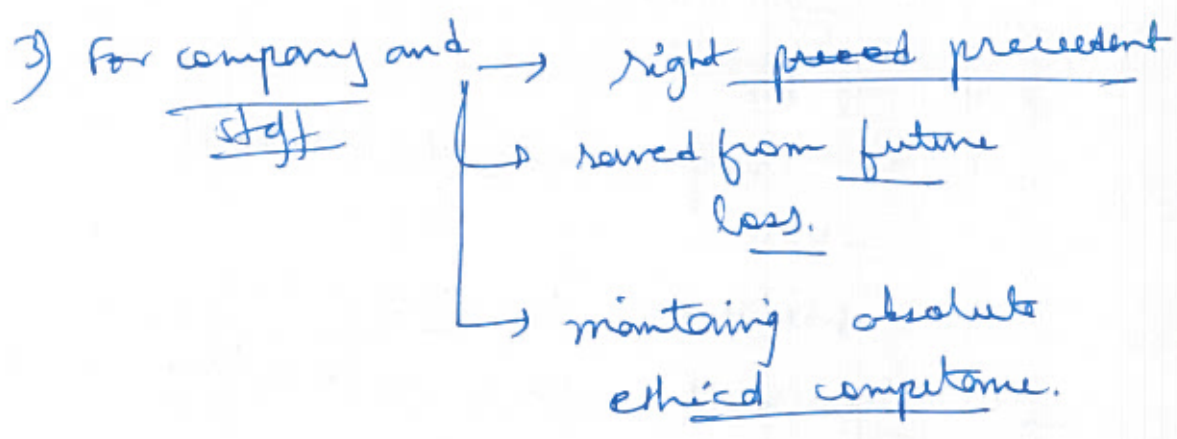 3) For company and → right preced precedent
staff
→ saved from future
loss.
→ maintaing absolute
ethical competence.